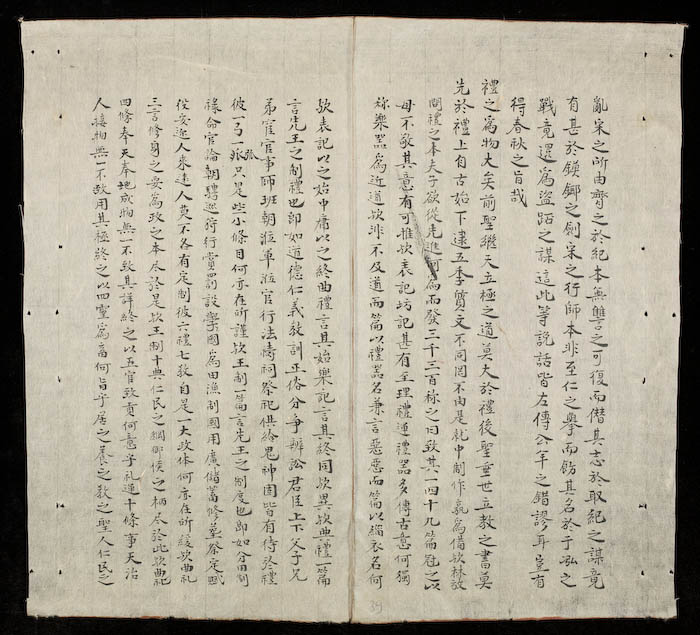 亂宋之所由齊之於紀本無讐之可復而僭其志於取紀之謀竟
有甚於鏌鋣之劍宋之行師本非至仁之擧而飭其名於于泓之
戰竟還爲盜跖之謀這此等說話皆左傳公羊之錯謬耳豈有
得春秋之旨哉
禮之爲物大矣前聖繼天立極之道莫大於禮後聖垂世立敎之書莫
先於禮上自古始下逮五季質文不同罔不由是就中制作孰爲備欤林放
問禮之本夫子欲從先進何爲而發二千三百祢之曰致其一四十九篇冠之以
毋不敬其意有可推欤表記坊記甚有至理禮運禮器多傳古意何獨
祢樂器爲近道欤非不及道而篇以禮器名兼言惡惡而篇以緇衣名何
欤表記以之始中庸以之終曲禮言其始樂記言其終同欤異欤典禮一篇
言先王之制禮也卽如道德仁義敎訓正俗分爭辨訟君臣上下父子兄
弟宦官事師班朝涖軍涖官行法禱祠祭祀供給鬼神固皆有待於禮
彼一弓一張只是些小條目何亦在所謹欤王制一篇言先王之制度也卽如分田制
祿命官論朝聘巡狩行賞罰設學國爲田漁制國用廣儲蓄修墓祭定賦
役安迩人來遠人莫不各有定制彼六禮七敎自是一大政体何亦在所緩欤曲礼
三言修身之要爲政之本尽於是欤王制十典仁民之綱御侯之柄尽於此欤曲礼
四條奉天奉地成物無一不致其詳終之以五官致貢何意乎礼運十條事天治
人接物無一不致用其極終之以四靈爲畜何旨乎居之養之敎之聖人仁民之
39